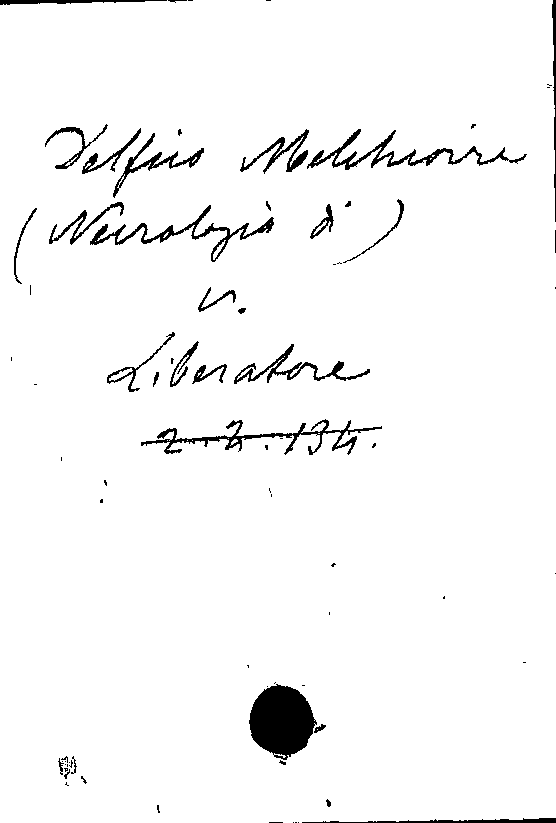 Delfico Melchiorre
(Necrologia di)
v.
Liberatore
2. Z. 134.